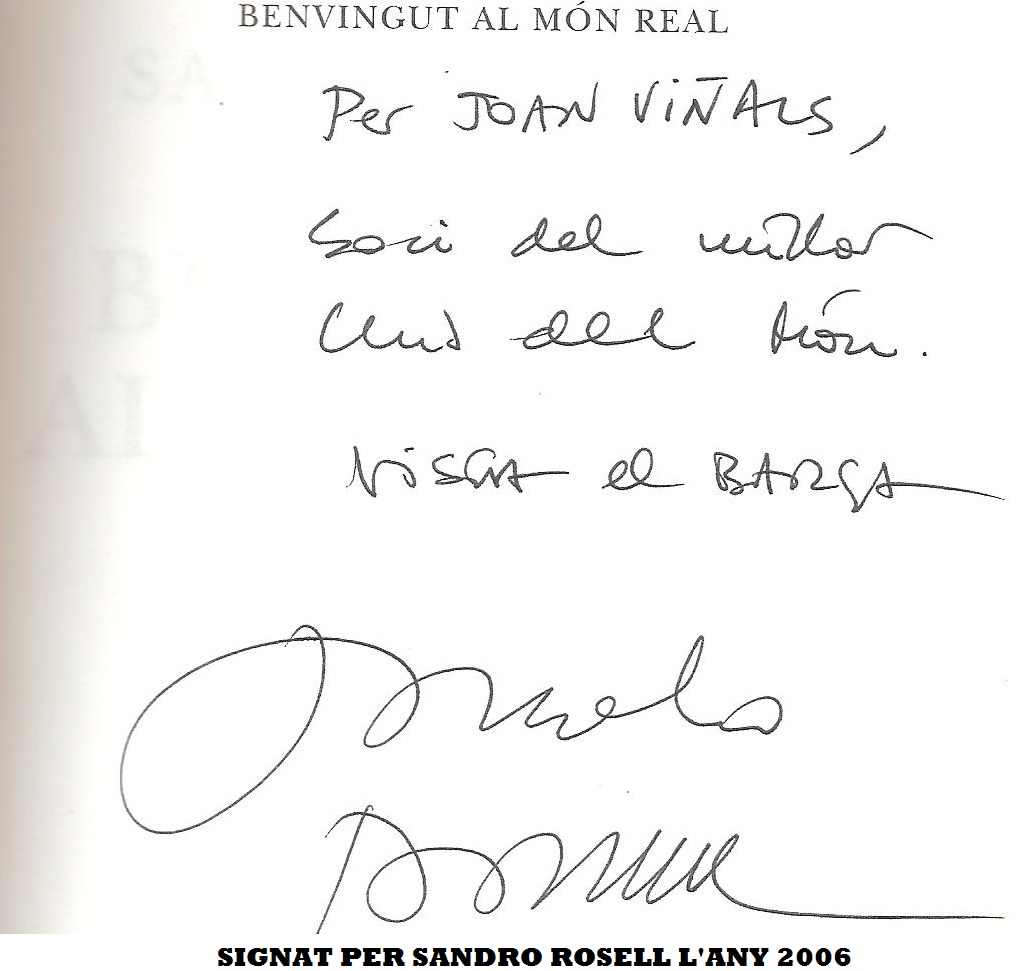 BENVINGUT AL MÓN REAL
Per JOAN VIÑALS,
Soci del millor
Club del Món.
VISCA el BARÇA
SIGNAT PER SANDRO ROSELL L'ANY 2006